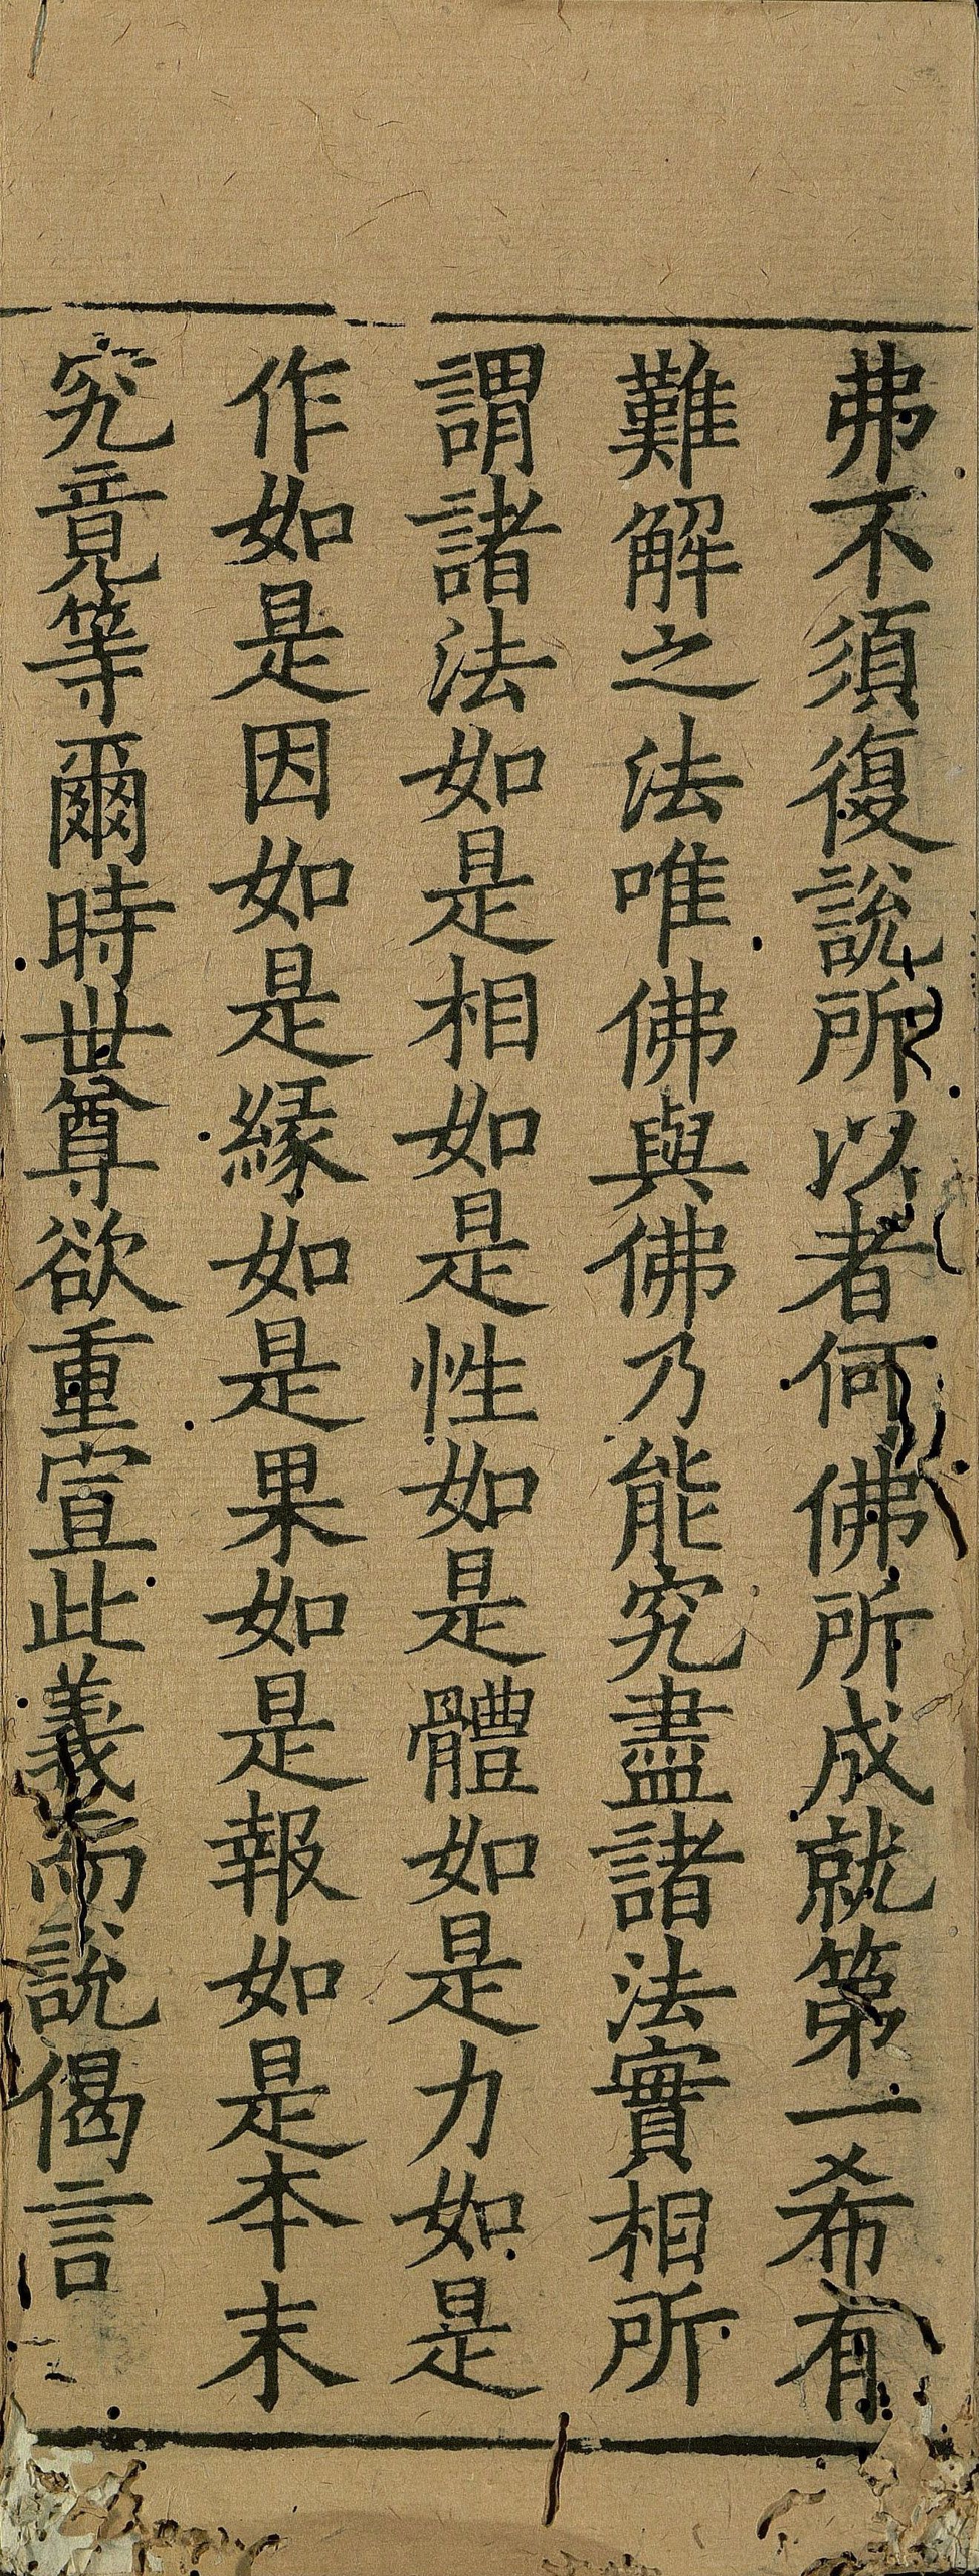 弗不須復說所以者何佛所成就第一希有
難解之法唯佛與佛乃能究盡諸法實相所
謂諸法如是相如是性如是體如是力如是
作如是因如是緣如是果如是報如是本末
究竟等爾時世尊欲重宣此義而說偈言